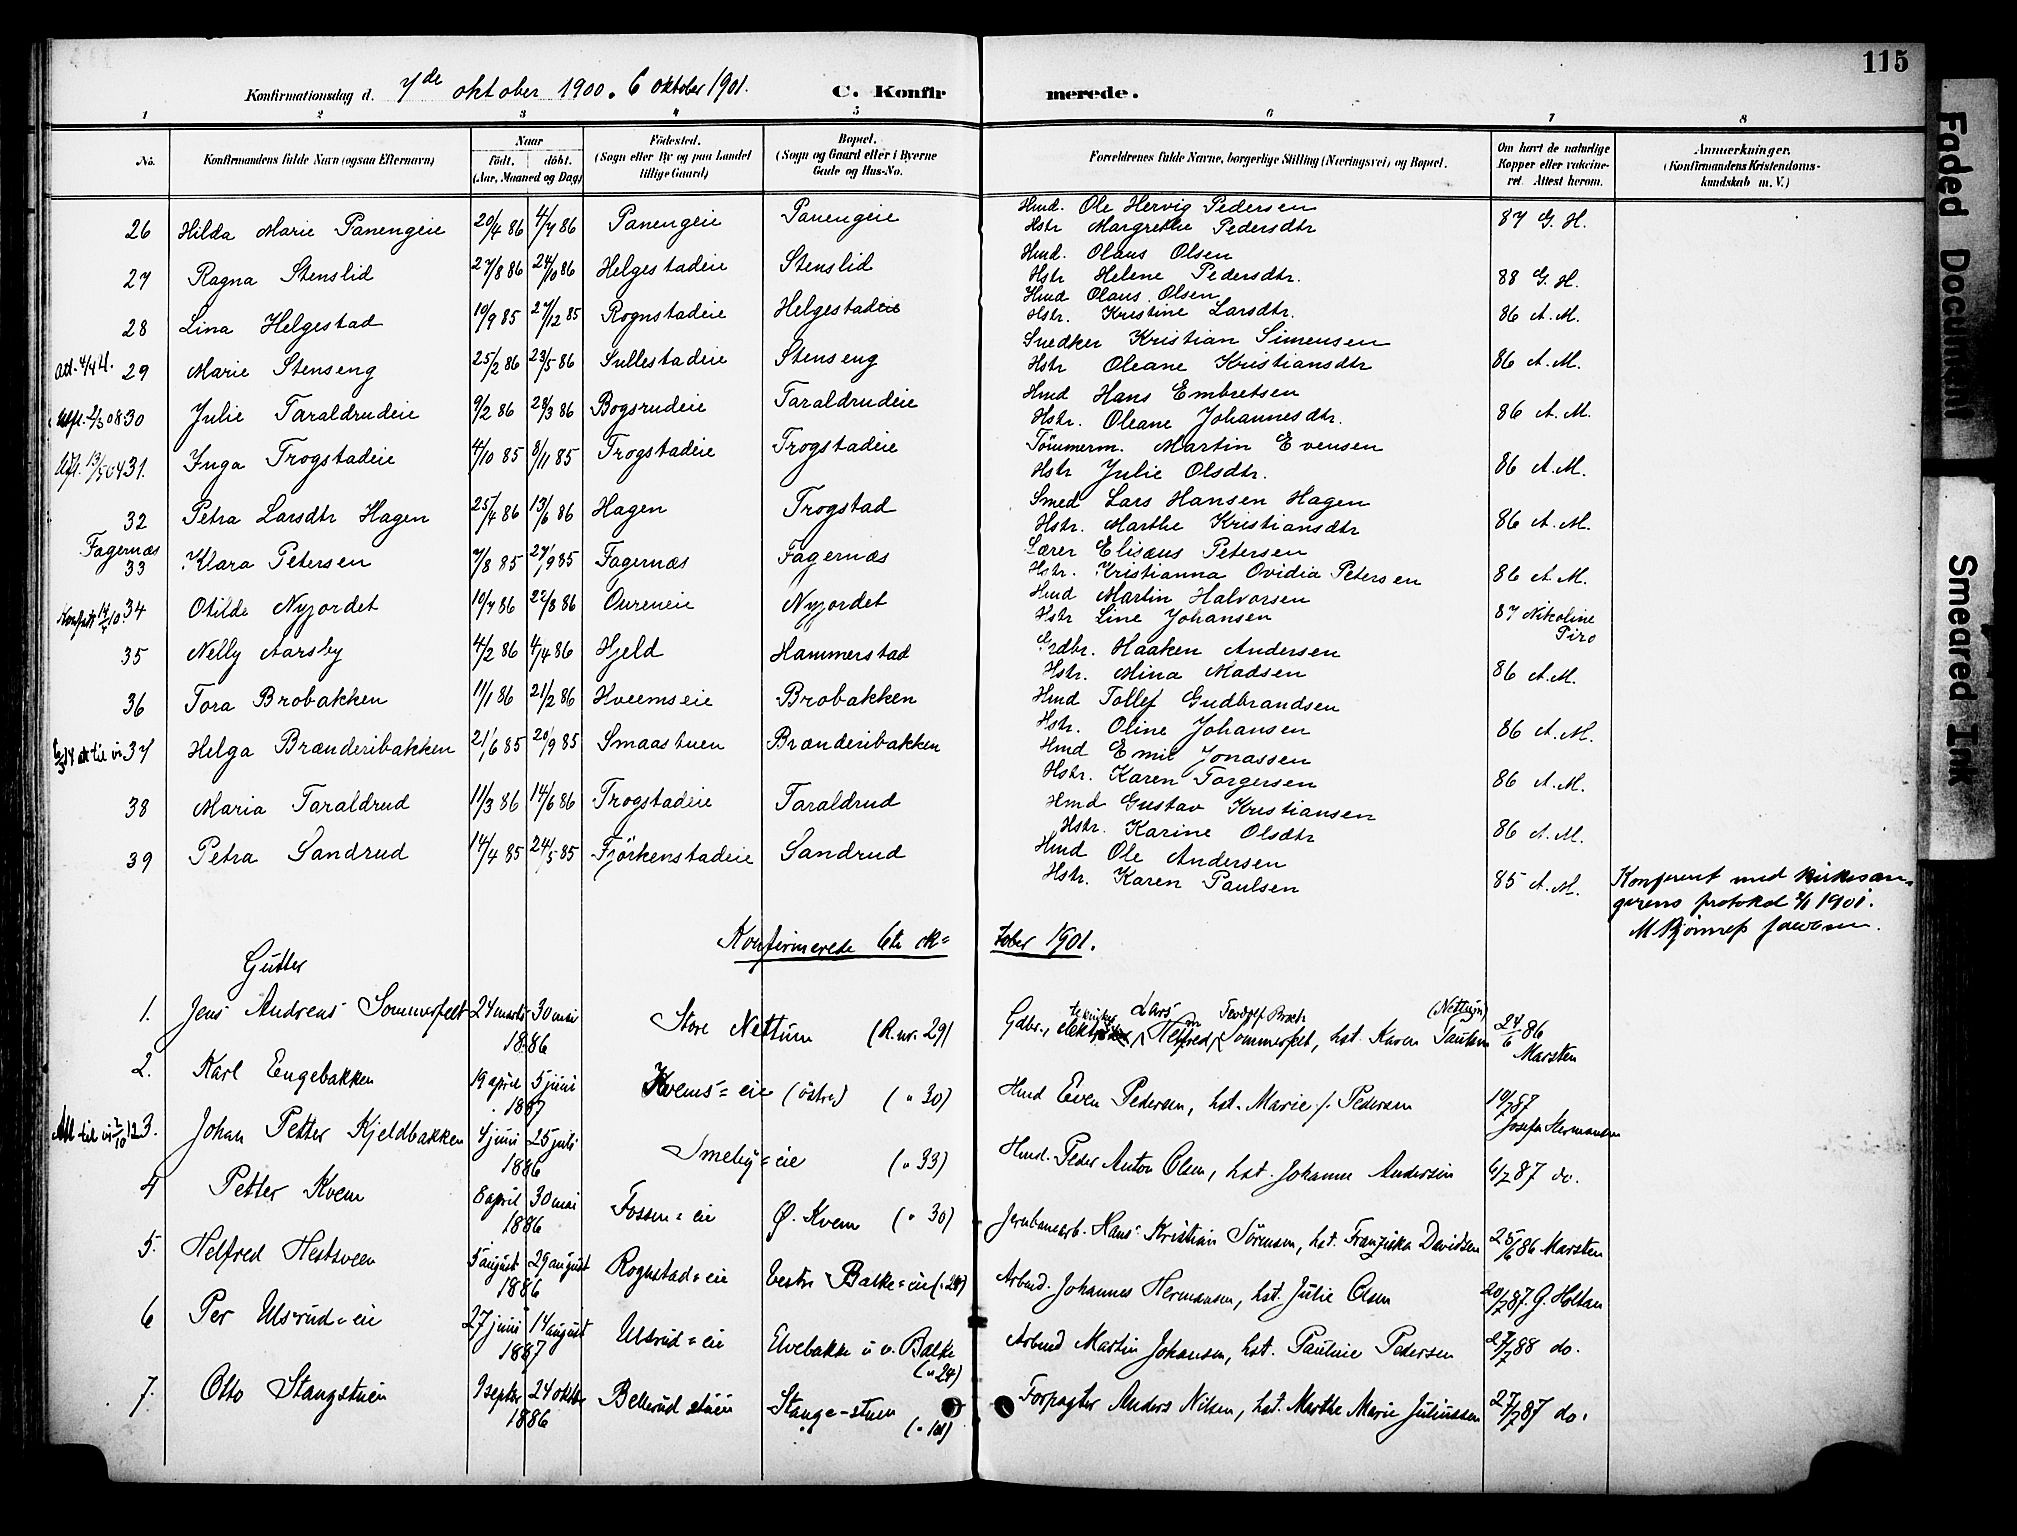 115
Konfirmationsdag d. 7de oktober 1900. 6 oktober 1901.
C. Konfirmerede.
1 2 3 4 5 6 7 8
No. Konfirmandens fulde Navn (ogsaa Efternavn) Naar födt. döbt. (Aar, Maaned og Dag) Födested. (Sogn eller By og paa Landet tillige Gaard) Bopæl. (Sogn og Gaard eller i Byerne Gade og Hus-No. Forældrenes fulde Navne, borgerlige Stilling (Næringsvei) og Bopæl. Om havt de naturlige Kopper eller vakcineret. Attest herom. Anmærkninger. (Konfirmandens Kristendomskundskab m. V.)
26 Hilda Marie Panengeie 20/4 86 4/7 86 Panengeie Panengeie Hmd. Ole Hervig Pedersen
Hstr Margrethe Pedersdtr 87 G. H.
27 Ragna Stenslid 27/8 86 24/10 86 Helgestadeie Stenslid Hmd. Olaus Olsen
Hstr Helene Pedersdtr. 88 G. H.
28 Lina Helgestad 10/9 85 27/12 85 Rognstadeie Helgestadeie Hmd Olaus Olsen
Hstr. Kristine Larsdtr. 86 A. M.
29 Marie Stenseng 25/2 86 23/5 86 Sullestadeie Stenseng Snedker Kristian Simensen
Hstr Oleane Kristiansdtr 86 A. M.
30 Julie Taraldrudeie 9/2 86 28/3 86 Bogsrudeie Taraldrudeie Hmd Hans Embretsen
Hstr. Oleane Johannesdtr. 86 A. M.
31. Inga Trogstadeie 4/10 85 8/11 85 Trogstadeie Trogstadeie Tömmerm. Martin Evensen
Hstr Julie Olsdtr. 86 A. M.
32 Petra Larsdtr Hagen 25/4 86 13/6 86 Hagen Trogstad Smed Lars Hansen Hagen
Hstr. Marthe Kristiansdtr 86 A. M.
Fagernæs
33 Klara Petersen 7/8 85 27/9 85 Fagernæs Fagernæs Lærer Elisæus Petersen
Hstr. Kristianna Ovidia Petersen 86 A. M.
34 Otilde Nyjordet 10/7 86 22/8 86 Oureneie Nyjordet Hmd Martin Halvorsen
Hstr Line Johansen 87 Nikoline Piro
35 Nelly Aarsby 4/2 86 4/4 86 Hjeld Hammerstad Grdbr. Haaken Andersen
Hstr. Mina Madsen 86 A. M.
36 Tora Brobakken 11/1 86 21/2 86 Hveemseie Brobakken Hmd Tollef Gudbrandsen
Hstr. Oline Johansen 86 A. M.
37 Helga Brænderibakken 21/6 85 20/9 85 Smaastuen Brænderibakken Hmd Emil Jonassen
Hstr. Karen Torgersen 86 A. M.
38 Maria Taraldrud 11/3 86 14/6 86 Trogstadeie Taraldrud Hmd Gustav Kristiansen
Hstr. Karine Olsdtr 86 A. M.
39 Petra Sandrud 14/4 85 24/5 85 Fjörkenstadeie Sandrud Hmd Ole Andersen
Hstr. Karen Paulsen 85 A. M.
Konferert med kirkesangerens protokol 1901.
Konfirmerede 6te oktober 1901.
Gutter
1. Jens Andreas Sommerfelt 24 marts 30 mai 1886 Store Nettum (R. nr. 29) Gdbr., tekniker Lars Helfred Sommerfelt, hst. Karen Paulsen (Nettum) 24/6 86 Marsten
2. Karl Engebakken 19 april 5 juni 1887 Kvems=eie (östre) (" 30) Hmd Even Pedersen, hst. Marie Pedersen 19/7 87 Josefa Hermansen
3. Johan Petter Kjeldbakken 4 juni 25 juli 1886 Smeby=eie (" 33) Hmd. Peder Anton Olsen, hst. Johanne Andersen 6/7 87 do.
4 Petter Kvem 8 april 30 mai 1886 Fossen=eie Ø. Kvem (" 30) Jernbanearb. Hans Kristian Sörensen, hst. Franziska Davidsen 25/6 86 Marsten
5. Helfred Hestsveen 5 august 29 august 1886 Rognstad=eie Vestre Balke=eie (" 28) Arbmd. Johannes Hermansen, hst. Julie Olsen 20/7 87. G. Holtan
6 Per Ulsrud=eie 27 juni 14 august 1887 Ulsrud=eie Elvebakke u v. Balke (" 28) Arbmd Martin Johansen, hst. Pauline Pedersen 27/7 88 do.
7. Otto Stangstuen 9 septbr 24 oktbr 1886 Bellerudstuen Stange-stuen (" 101) Forpagter Anders Nilsen, hst. Marthe Marie Juliussen 27/7 87 do.
Faded Document
Smeared Ink